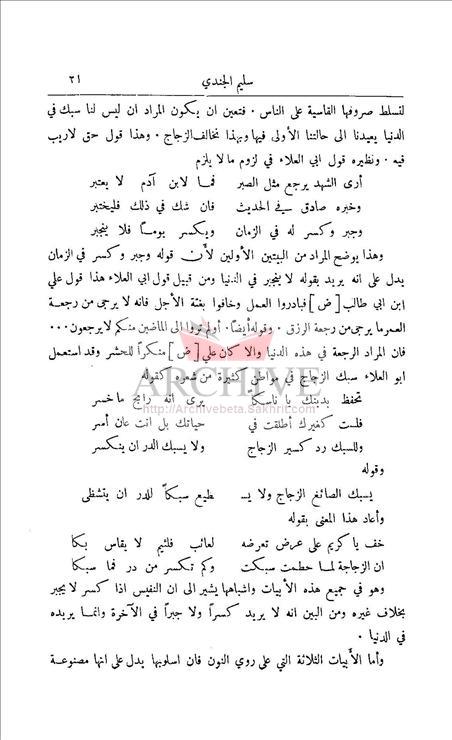 سليم الجندي ٢١
لتسلط صروفها القاسية على الناس . فتعين ان يكون المراد ان ليس لنا سبك في
الدنيا يعيدنا الى حالتنا الأولى فيها وبهذا نخالف الزجاج . وهذا قول حق لاريب
فيه . ونظيره قول ابي العلاء في لزوم ما لا يلزم
أرى الشهد يرجع مثل الصبر فما لابن آدم لا يعتبر
وخبره صادق في الحديث فان شك في ذلك فليختبر
وجبر وكسر له في الزمان ويكسر يوماً فلا ينجبر
وهذا يوضح المراد من البيتين الأولين لأن قوله وجبر وكسر في الزمان
يدل على انه يريد بقوله لا ينجبر في الدنيا ومن قبيل قول ابي العلاء هذا قول علي
ابن ابي طالب [ض] فبادروا العمل وخافوا بغتة الأجل فانه لا يرجى من رجعة
العمر ما يرجى من رجعة الرزق . وقوله أيضاً . أولم تروا الى الماضين منكم لا يرجعون ...
فان المراد الرجعة في هذه الدنيا والا كان علي [ض] منكراً للحشر وقد استعمل
ابو العلاء سبك الزجاج في مواطن كثيرة من شعره كقوله
ARCHIVE
http://Archivebeta.Sakhrit.com
تحفظ بدينك يا ناسكاً يرى انه رابح ما خسر
فلست كغيرك أطلقت في حياتك بل انت عان أسر
وللسبك رد كسير الزجاج ولا يسبك الدر ان ينكسر
وقوله
يسبك الصائغ الزجاج ولا يسـ ـطيع سبكاً للدر ان يتشظى
وأعاد هذا المعنى بقوله
خف يا كريم على عرض تعرضه لعائب فلئيم لا يقاس بكا
ان الزجاجة لما حطمت سبكت وكم تكسر من در فما سبكا
وهو في جميع هذه الأبيات واشباهها يشير الى ان النفيس اذا كسر لا يجبر
بخلاف غيره ومن البين انه لا يريد كسراً ولا جبراً في الآخرة وانما يريده
في الدنيا .
وأما الأبيات الثلاثة التي على روي النون فان اسلوبها يدل على انها مصنوعة